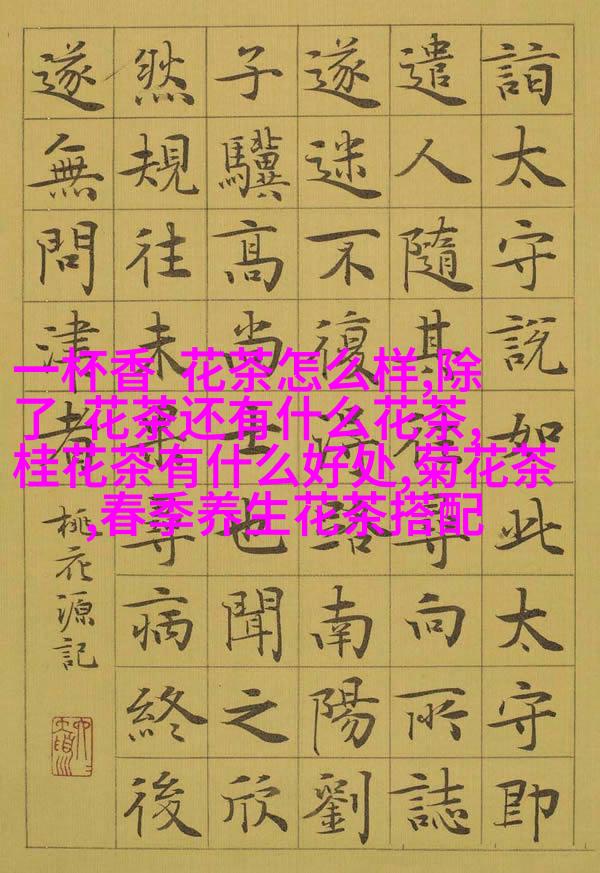 詣太守說如此太守即
遣人隨其往尋向所誌
遂迷不復得路南陽劉
子驥高尚士也聞之欣
然規往未果尋病終後
遂無問津者
桃花源記
一杯香 花茶怎么样,除
了 花茶还有什么花茶,
桂花茶有什么好处,菊花茶
,春季养生花茶搭配